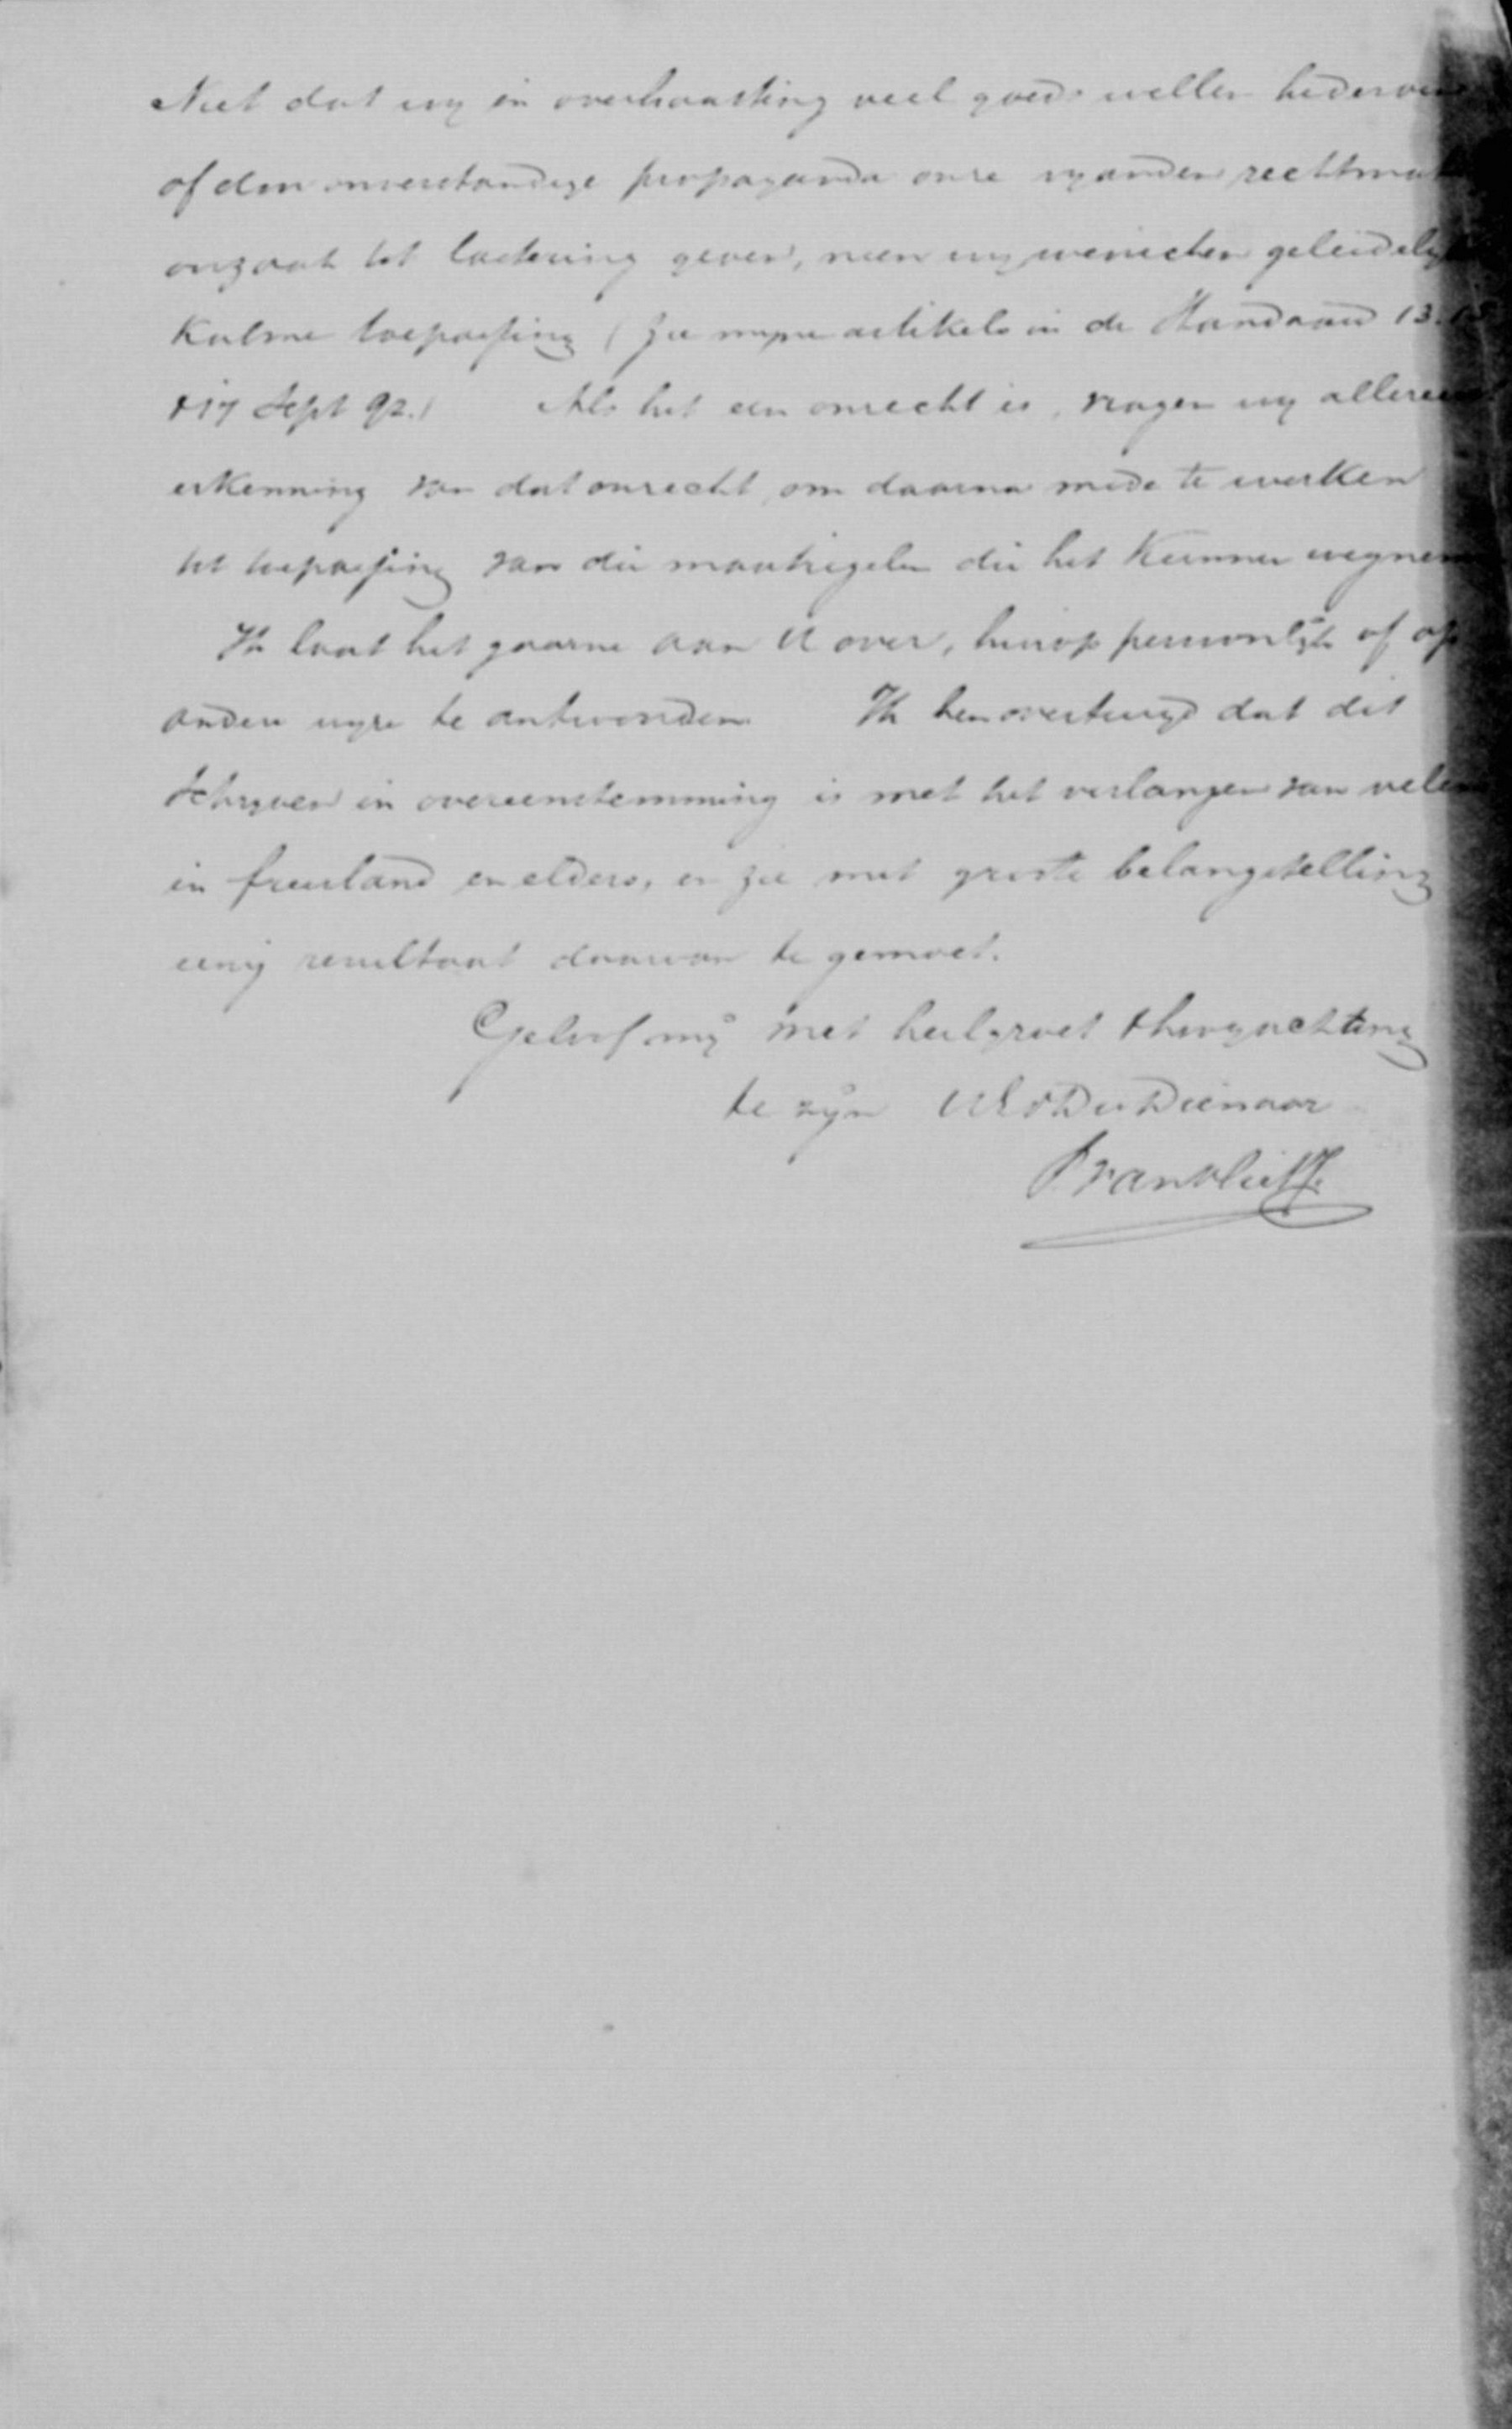 Niet dat wij in overhaasting veel goeds willen bederven
of door onverstandige propaganda onze vyanden rechtmat
oorzaak tot lastering geven, neen wy wenschen geleidelyk
Kalme toepassing (zie myne artikels in de Standaard 13. 15
& 17 Sept 92.) Als het een onrecht is, vragen wy allereerst
erkenning van dat onrecht, om daarna mede te werken
tot toepassing van die maatregelen die het Kunnen wegnem
Ik laat het gaarne aan U over, hierop persoonlijk of op
andere wyze te antwoorden Ik ben overtuigd dat dit
schryven in overeenstemming is met het verlangen van velen
in friesland en elders, en zie met groote belangstelling
eenig resultaat daarvan te gemoet.
Geloof mij met heilgroet & hoogachting
te zyn UEd Dw Dienaar
P van Vliet Jr.